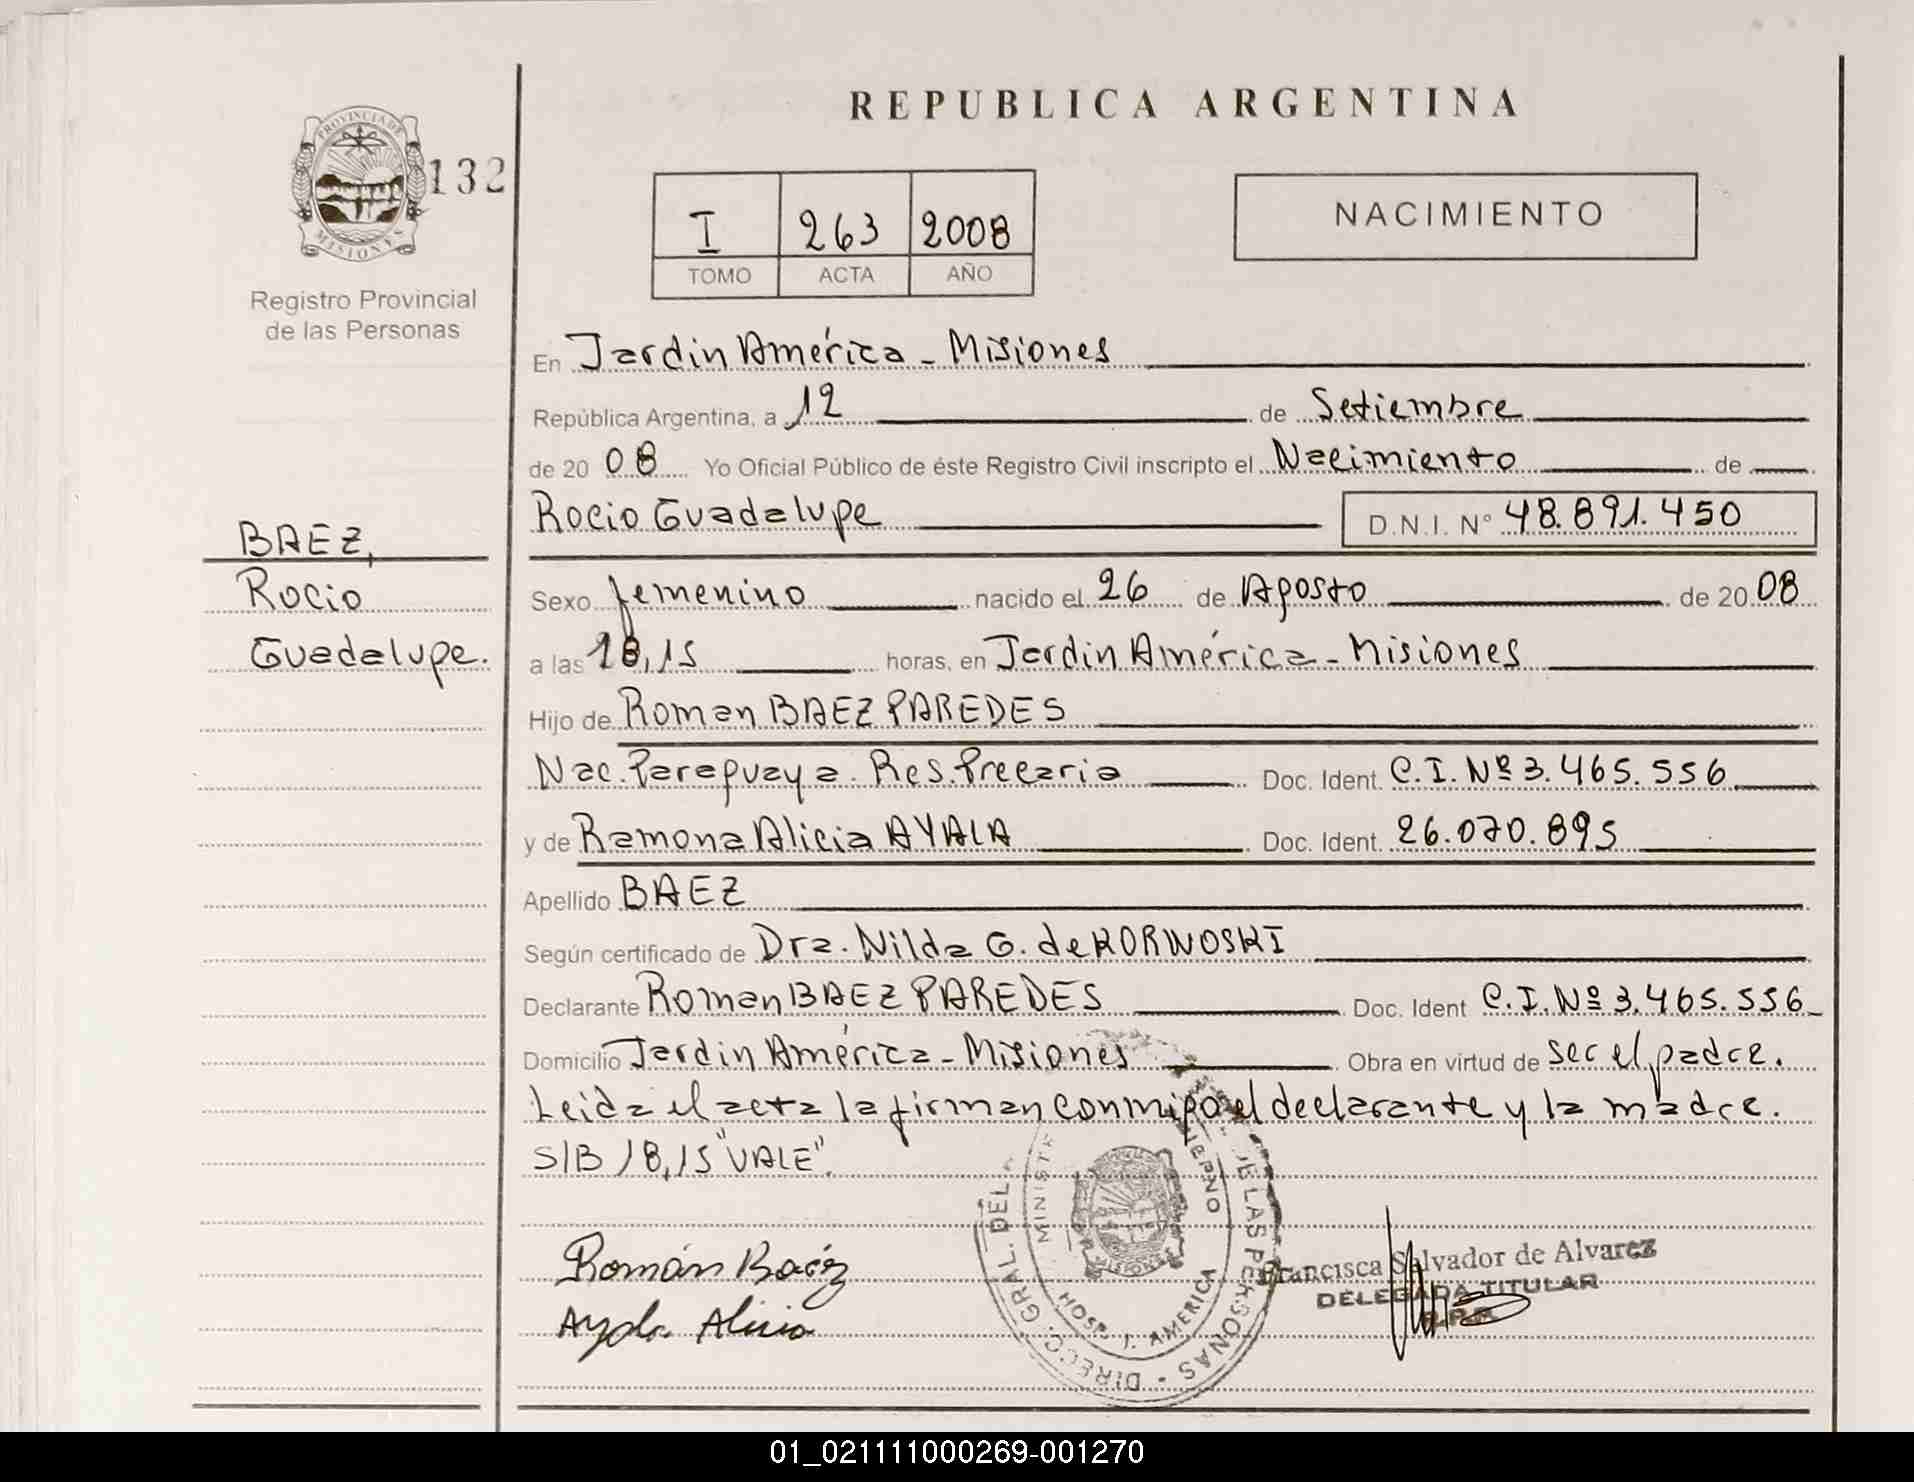 REPUBLICA ARGENTINA
PROVINCIA DE
MISIONES
132
Registro Provincial
de las Personas
I 263 2008
TOMO ACTA AÑO
NACIMIENTO
En Jardin América - Misiones
República Argentina, a 12 de Setiembre
de 20 08 Yo Oficial Público de éste Registro Civil inscripto el Nacimiento de
Rocio Guadalupe D.N.I. N° 48.891.450
BAEZ,
Rocio
Guadalupe.
Sexo femenino nacido el 26 de Agosto de 20 08
a las 18,15 horas, en Jardin América - Misiones
Hijo de Roman BAEZ PAREDES
Nac. Paraguaya. Res. Precaria Doc. Ident. C.I. Nº 3.465.556
y de Ramona Alicia AYALA Doc. Ident. 26.070.895
Apellido BAEZ
Según certificado de Dra. Nilda G. de KORWOSKI
Declarante Roman BAEZ PAREDES Doc. Ident C.I. Nº 3.465.556
Domicilio Jardin América - Misiones Obra en virtud de ser el padre.
Leida el acta la firman conmigo el declarante y la madre.
S/B 18,15 "VALE".
Román Baéz
Ayala Alicia
DIRECC. GRAL. DEL DE LAS PERSONAS
HOSP. J. AMERICA
MISIONES
Francisca Salvador de Alvarez
DELEGADA TITULAR
01_021111000269-001270